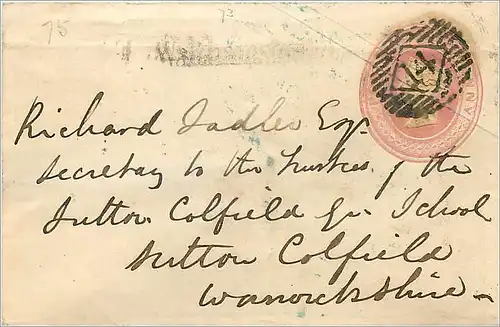 75
73
Richard Sadler Esqr
Secretary to the Trustees of the
Sutton Colfield Gr. School
Sutton Colfield
Warwickshire